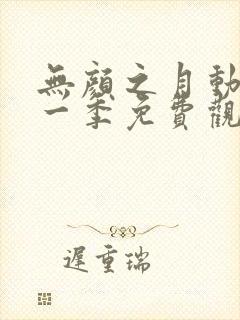 無顏之月動
一季免費觀
遲重瑞